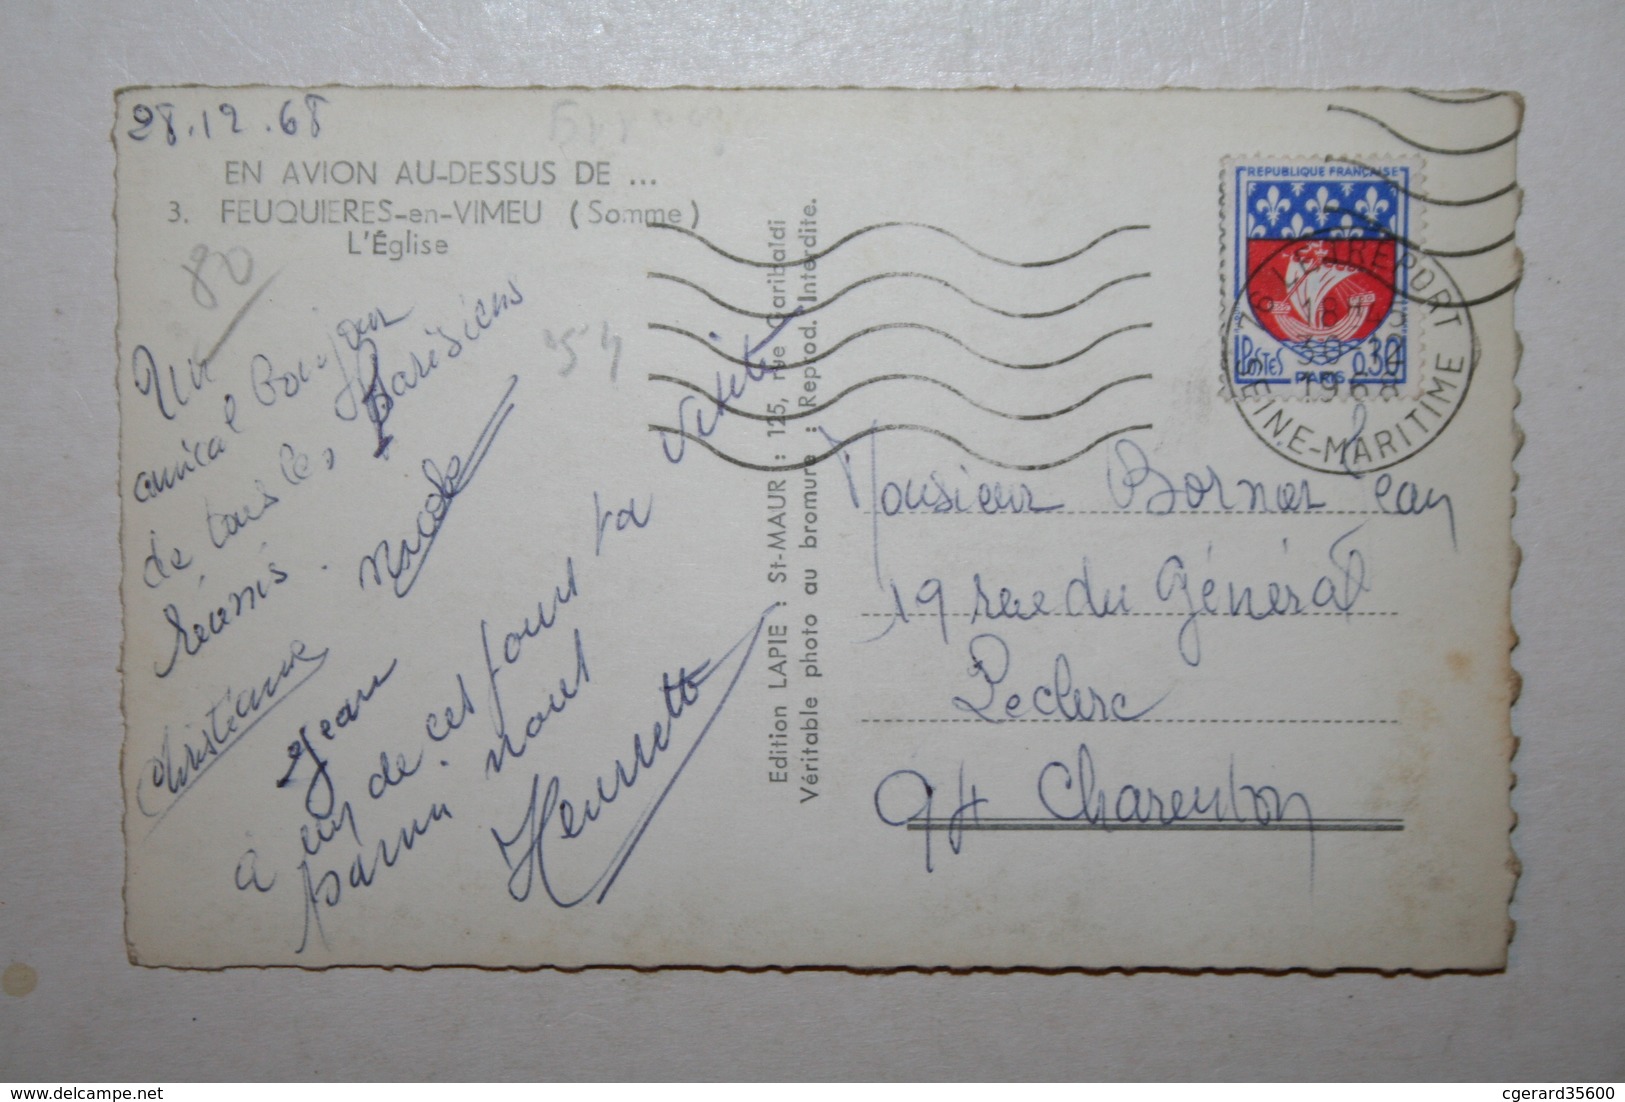 28.12.68
EN AVION AU-DESSUS DE ...
3. FEUQUIERES-en-VIMEU (Somme)
L'Église
80
Un
amical Bonjour
de tous les Parisiens
réunis.
Christiane
Jean
à un de ces jours ta visite
parmi nous
Henriette
Edition LAPIE : St-MAUR : 125, rue Garibaldi
Véritable photo au bromure : Reprod. Interdite.
REPUBLIQUE FRANÇAISE
POSTES
0,30
PARIS
LE TREPORT
18H45
30-12
1968
SEINE-MARITIME
Monsieur Borner Jean
19 rue du Général
Leclerc
94 Charenton
delcampe.net
cgerard35600